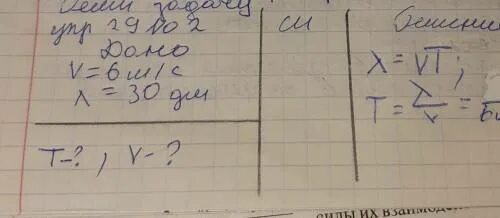 задачу
упр 29 № 2
Дано
V = 6 м/с
λ = 30 дм
T-? , V-?
СИ
Решение
λ = VT;
T = λ/v =
силы их взаимодей